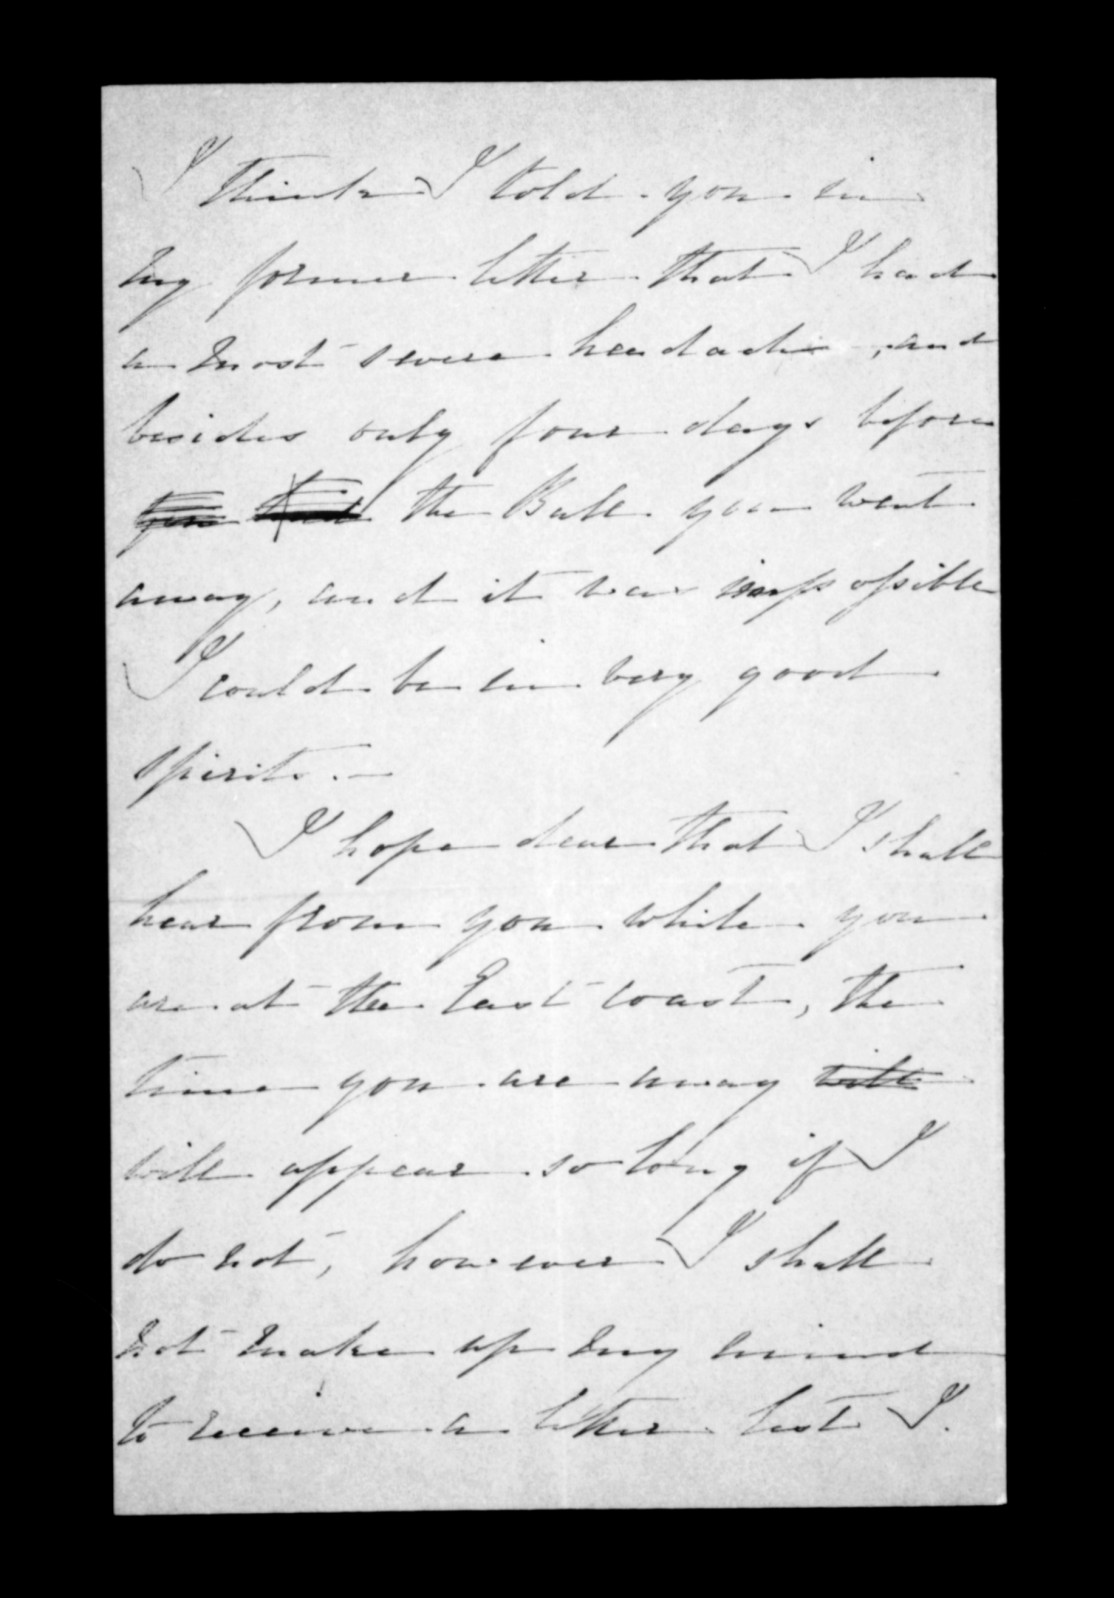 I think I told you in
my former letter that I had
a most severe headache, and
besides only four days before
the Ball you went
away, and it was impossible
I could be in very good
spirits. —
I hope dear that I shall
hear from you while you
are at the East Coast, the
time you are away will
will appear so long if I
do not, however I shall
not make up my mind
to receive a letter lest I.